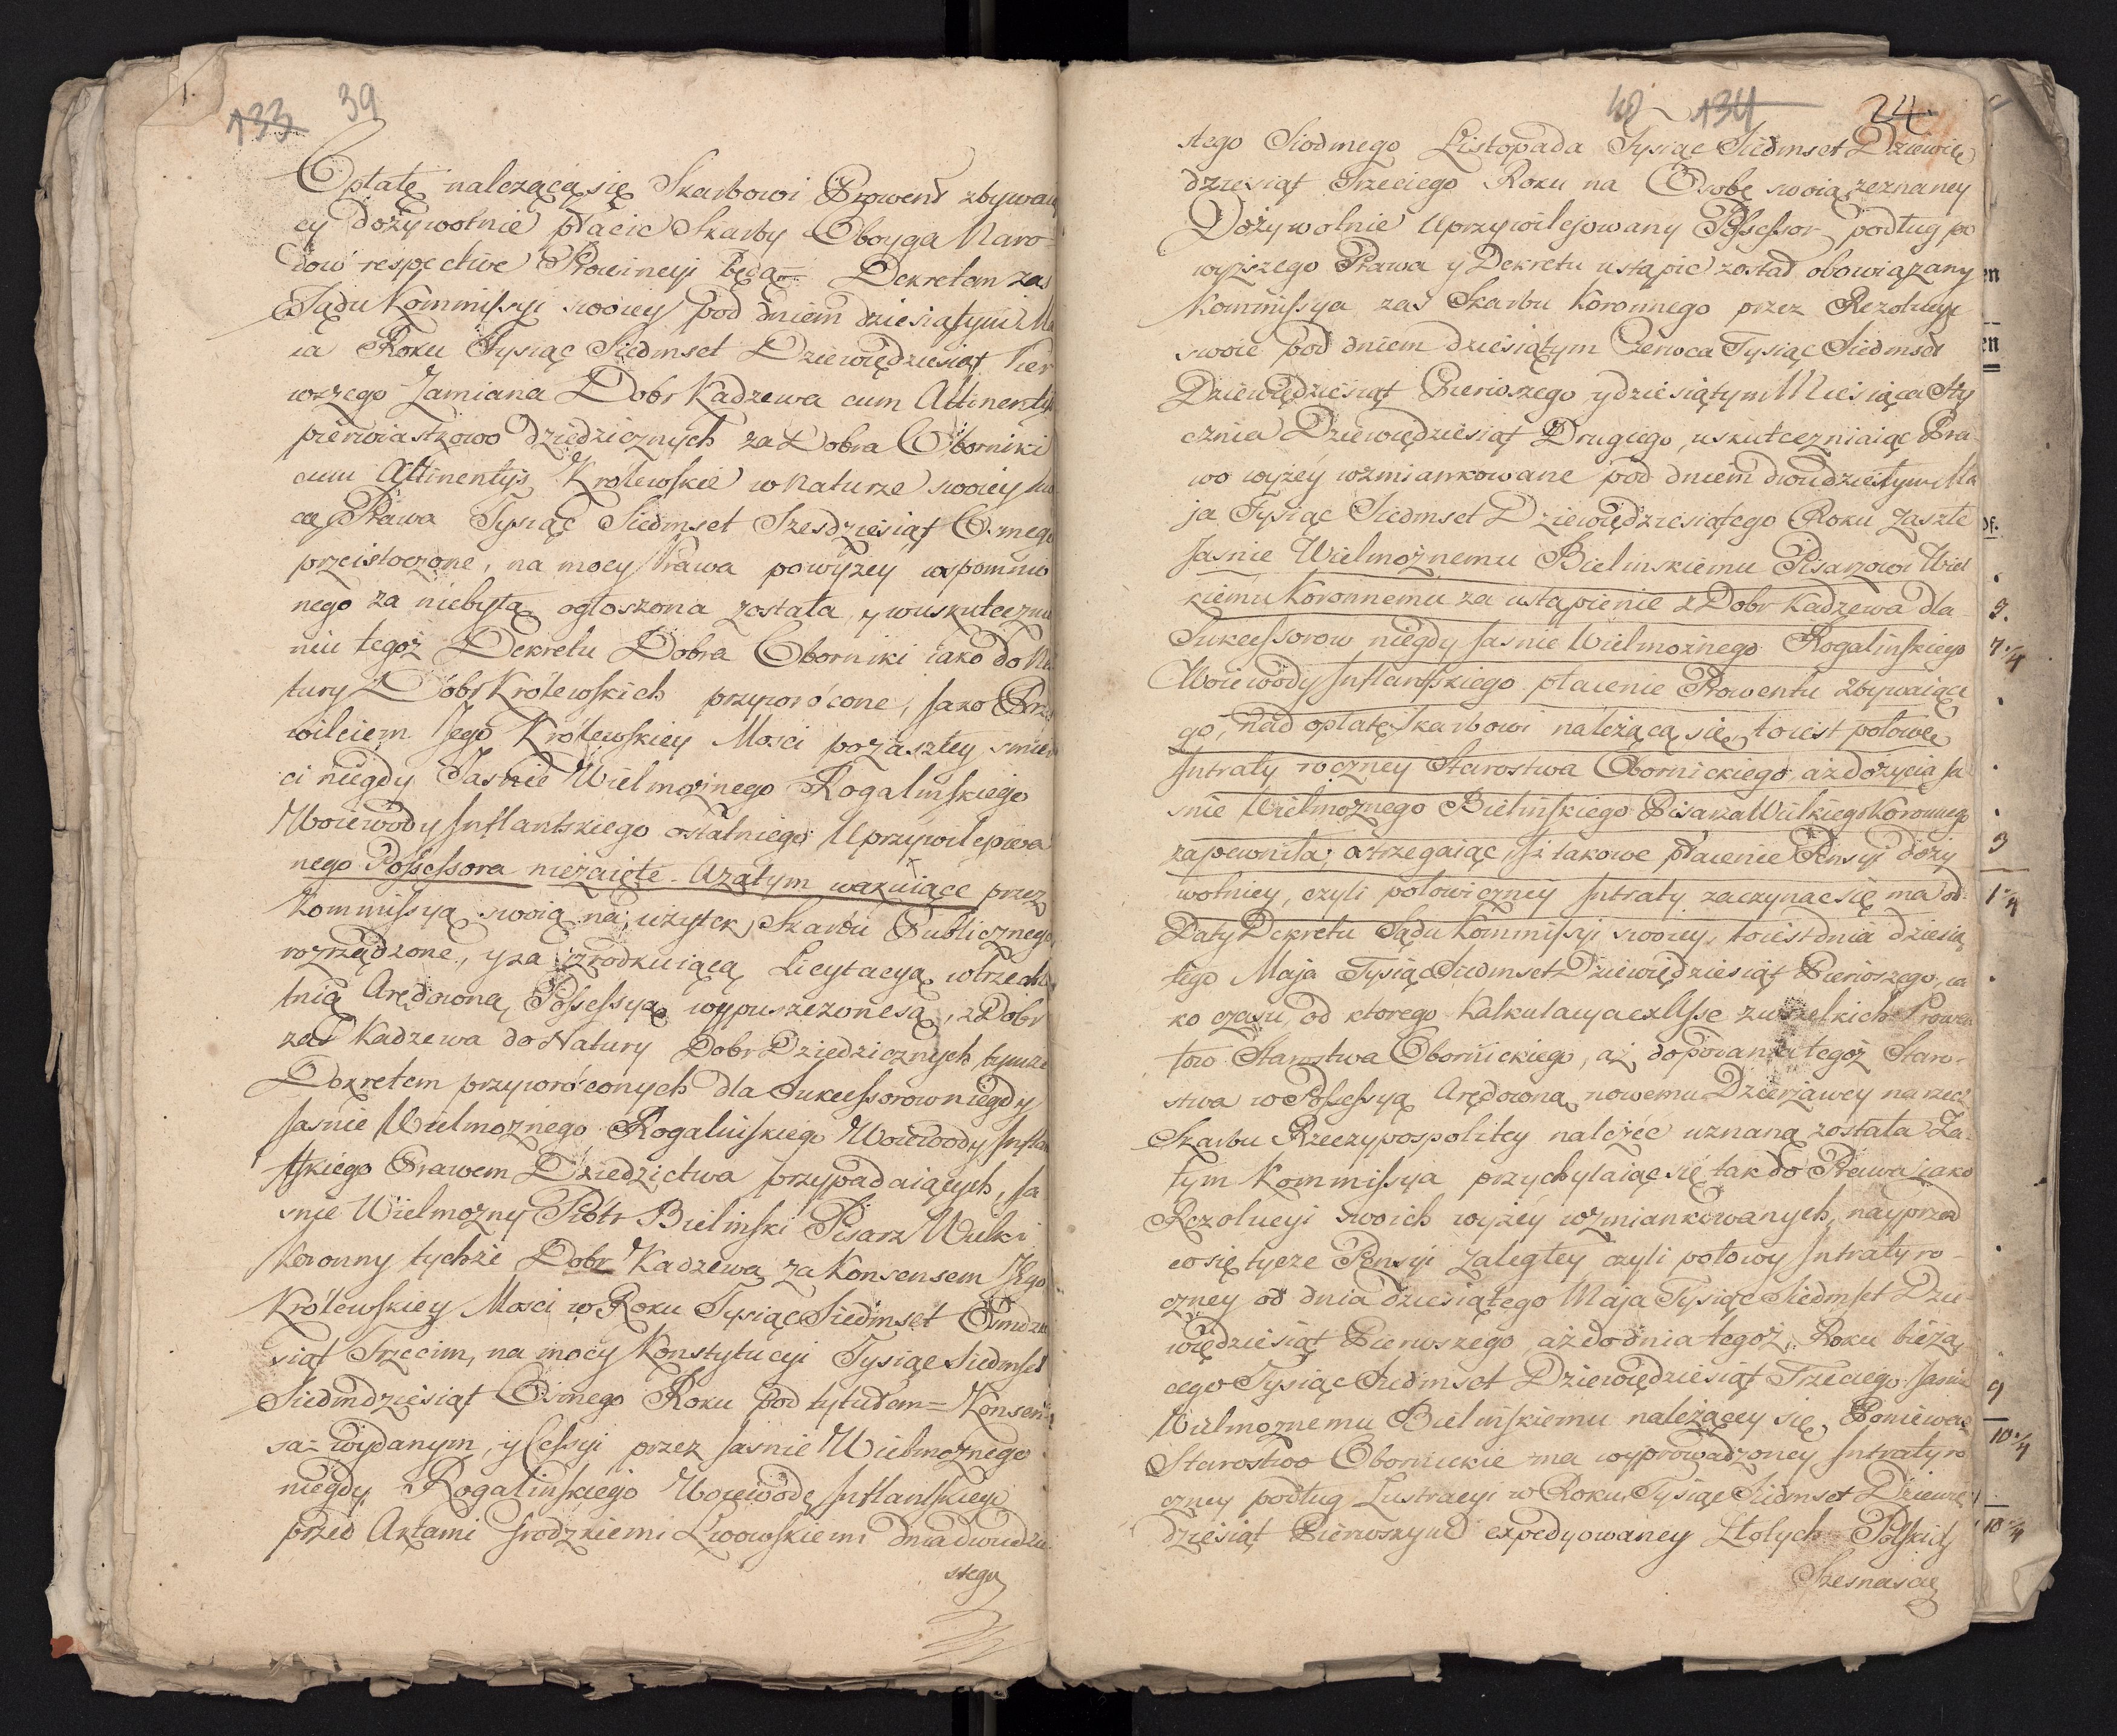 133 39
Opłatę należącą się Skarbowi Prowent zbywaią
cy dożywotnie płacić Skarby Oboyga Naro-
dow respective Prowincyi będą = Dekretem zaś
Sądu Kommissyi swoiey pod dniem dziesiątym Ma
ia Roku Tysiąc Siedmset Dziewiędziesiąt Pier
wszego Zamiana Dobr Kadzewa cum Attinentijs
pierwiastkowo dziedzicznych za Dobra Oborniki
cum Attinentijs Krolewskie w naturze swoiey
cą Prawa Tysiąc Siedmset Szesdziesiąt Osmego
przeistoczone, na mocy Prawa powyżey wspomnio
nego za niebyłą ogłoszona została, y w uskutecznie
niu tegoż Dekretu Dobra Oborniki iako do Na
tury Dobr Krolewskich przywrócone, Jako Przy
wileiem Jego Królewskiey Mosci po zaszłey smier
ci niegdy Jasnie Wielmożnego Rogalinskiego
Woiewody Inflantskiego ostatniego Uprzywilejowa
nego Possessora niezaięte. Azatym wakuiące przez
Kommissyą swoią na użytek Skarbu Publicznego
rozrządzone, y za poprzedzaiącą Licytacyą w trzechle
tnią Arędowną Possessyą wypuszczone są, z Dobr
zaś Kadzewa do Natury Dobr Dziedzicznych tymże
Dekretem przywróconych dla Sukcessorow niegdy
Jasnie Wielmożnego Rogalinskiego Woiewody Inflan
tskiego Prawem Dziedzictwa przypadaiących, Ja
snie Wielmożny Piotr Bielinski Pisarz Wielki
Koronny tychże Dobr Kadzewa za Konsensem Jego
Królewskiey Mosci w Roku Tysiąc Siedmset Osmdzie
siąt Trzecim, na mocy Konstytucyi Tysiąc Siedmset
Siedmdziesiąt Osmego Roku pod tytułem = Konsen-
sa = wydanym, y Cessyi przez Jasnie Wielmożnego
niegdy Rogalinskiego Woiewodę Inflantskiego
przed Aktami Grodzkiemi Lwowskiemi dnia dwudzie
stego
40 134 24
stego Siodmego Listopada Tysiąc Siedmset Dziewię
dziesiąt Trzeciego Roku na Osobę swoią zeznaney
Dożywotnie Uprzywilejowany Possessor podług po
wyższego Prawa y Dekretu ustąpić został obowiązany
Kommissya zaś Skarbu Koronnego przez Rezolucye
swoie pod dniem dziesiątym Czerwca Tysiąc Siedmset
Dziewiędziesiąt Pierwszego y dziesiątym Miesiąca Sty
cznia Dziewiędziesiąt Drugiego, uskuteczniaiąc Pra
wo wyżey wzmiankowane pod dniem dwudziestym Ma
ja Tysiąc Siedmset Dziewiędziesiątego Roku zaszłe
Jasnie Wielmożnemu Bielinskiemu Pisarzowi Wiel
kiemu Koronnemu za ustąpienie z Dobr Kadzewa dla
Sukcessorow niegdy Jasnie Wielmożnego Rogalinskiego
Woiewody Inflantskiego płacenie Prowentu zbywaiące
go, nad opłatę Skarbowi należącą się, to iest połowę
Intraty roczney Starostwa Obornickiego, aż do życia Ja
snie Wielmożnego Bielinskiego Pisarza Wielkiego Koronnego
zapewniła, ostrzegaiąc, iż takowe płacenie Pensyi doży
wotniey, czyli połowiczney Intraty zaczynać się ma od
Daty Dekretu Sądu Kommissyi swoiey, to iest dnia dziesią
tego Maja Tysiąc Siedmset Dziewiędziesiąt Pierwszego, ia
ko czasu, od ktorego Kalkulacya exUsse z wszelkich Prowen
tow Starostwa Obornickiego, aż do podania tegoż Staro-
stwa w Possessyą Arędowną nowemu Dzierżawcy na rzecz
Skarbu Rzeczypospolitey należeć uznaną została. Za
tym Kommissya przychylaiąc się tak do Prawa iako
Rezolucyi swoich wyżey wzmiankowanych, nayprzod
co się tycze Pensyi zaległey czyli połowy Intraty ro-
czney od dnia dziesiątego Maja Tysiąc Siedmset Dzie-
więdziesiąt Pierwszego, aż do dnia tegoż, Roku bieżą
cego Tysiąc Siedmset Dziewiędziesiąt Trzeciego Jasnie
Wielmożnemu Bielinskiemu należącey się, Ponieważ
Starostwo Obornickie ma wyprowadzoney Intraty ro
czney podług Lustracyi w Roku Tysiąc Siedmset Dziewię
dziesiąt Pierwszym expedyowaney Złotych Polskich
Szesnascie